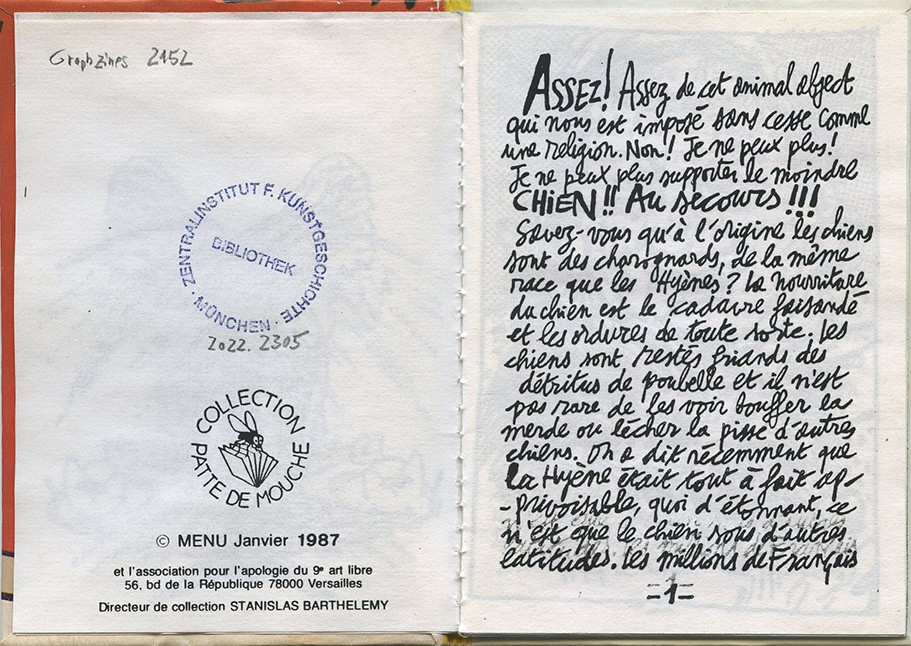 Graphzines 2152
ZENTRALINSTITUT F. KUNSTGESCHICHTE · MÜNCHEN ·
BIBLIOTHEK
2022. 2305
COLLECTION
PATTE DE MOUCHE
© MENU Janvier 1987
et l'association pour l'apologie du 9e art libre
56, bd de la République 78000 Versailles
Directeur de collection STANISLAS BARTHELEMY
ASSEZ! Assez de cet animal abject
qui nous est imposé sans cesse comme
une religion. Non! Je ne peux plus!
Je ne peux plus supporter le moindre
CHiEN!! Au secours!!!
Savez-vous qu'à l'origine les chiens
sont des charognards, de la même
race que les Hyènes? La nourriture
du chien est le cadavre faisandé
et les ordures de toute sorte. Les
chiens sont restés friands des
détritus de poubelle et il n'est
pas rare de les voir bouffer la
merde ou lécher la pisse d'autres
chiens. On a dit récemment que
la Hyène était tout à fait ap-
-privoisable, quoi d'étonnant, ce
n'est que le chien sous d'autres
latitudes. Les millions de Français
=1=